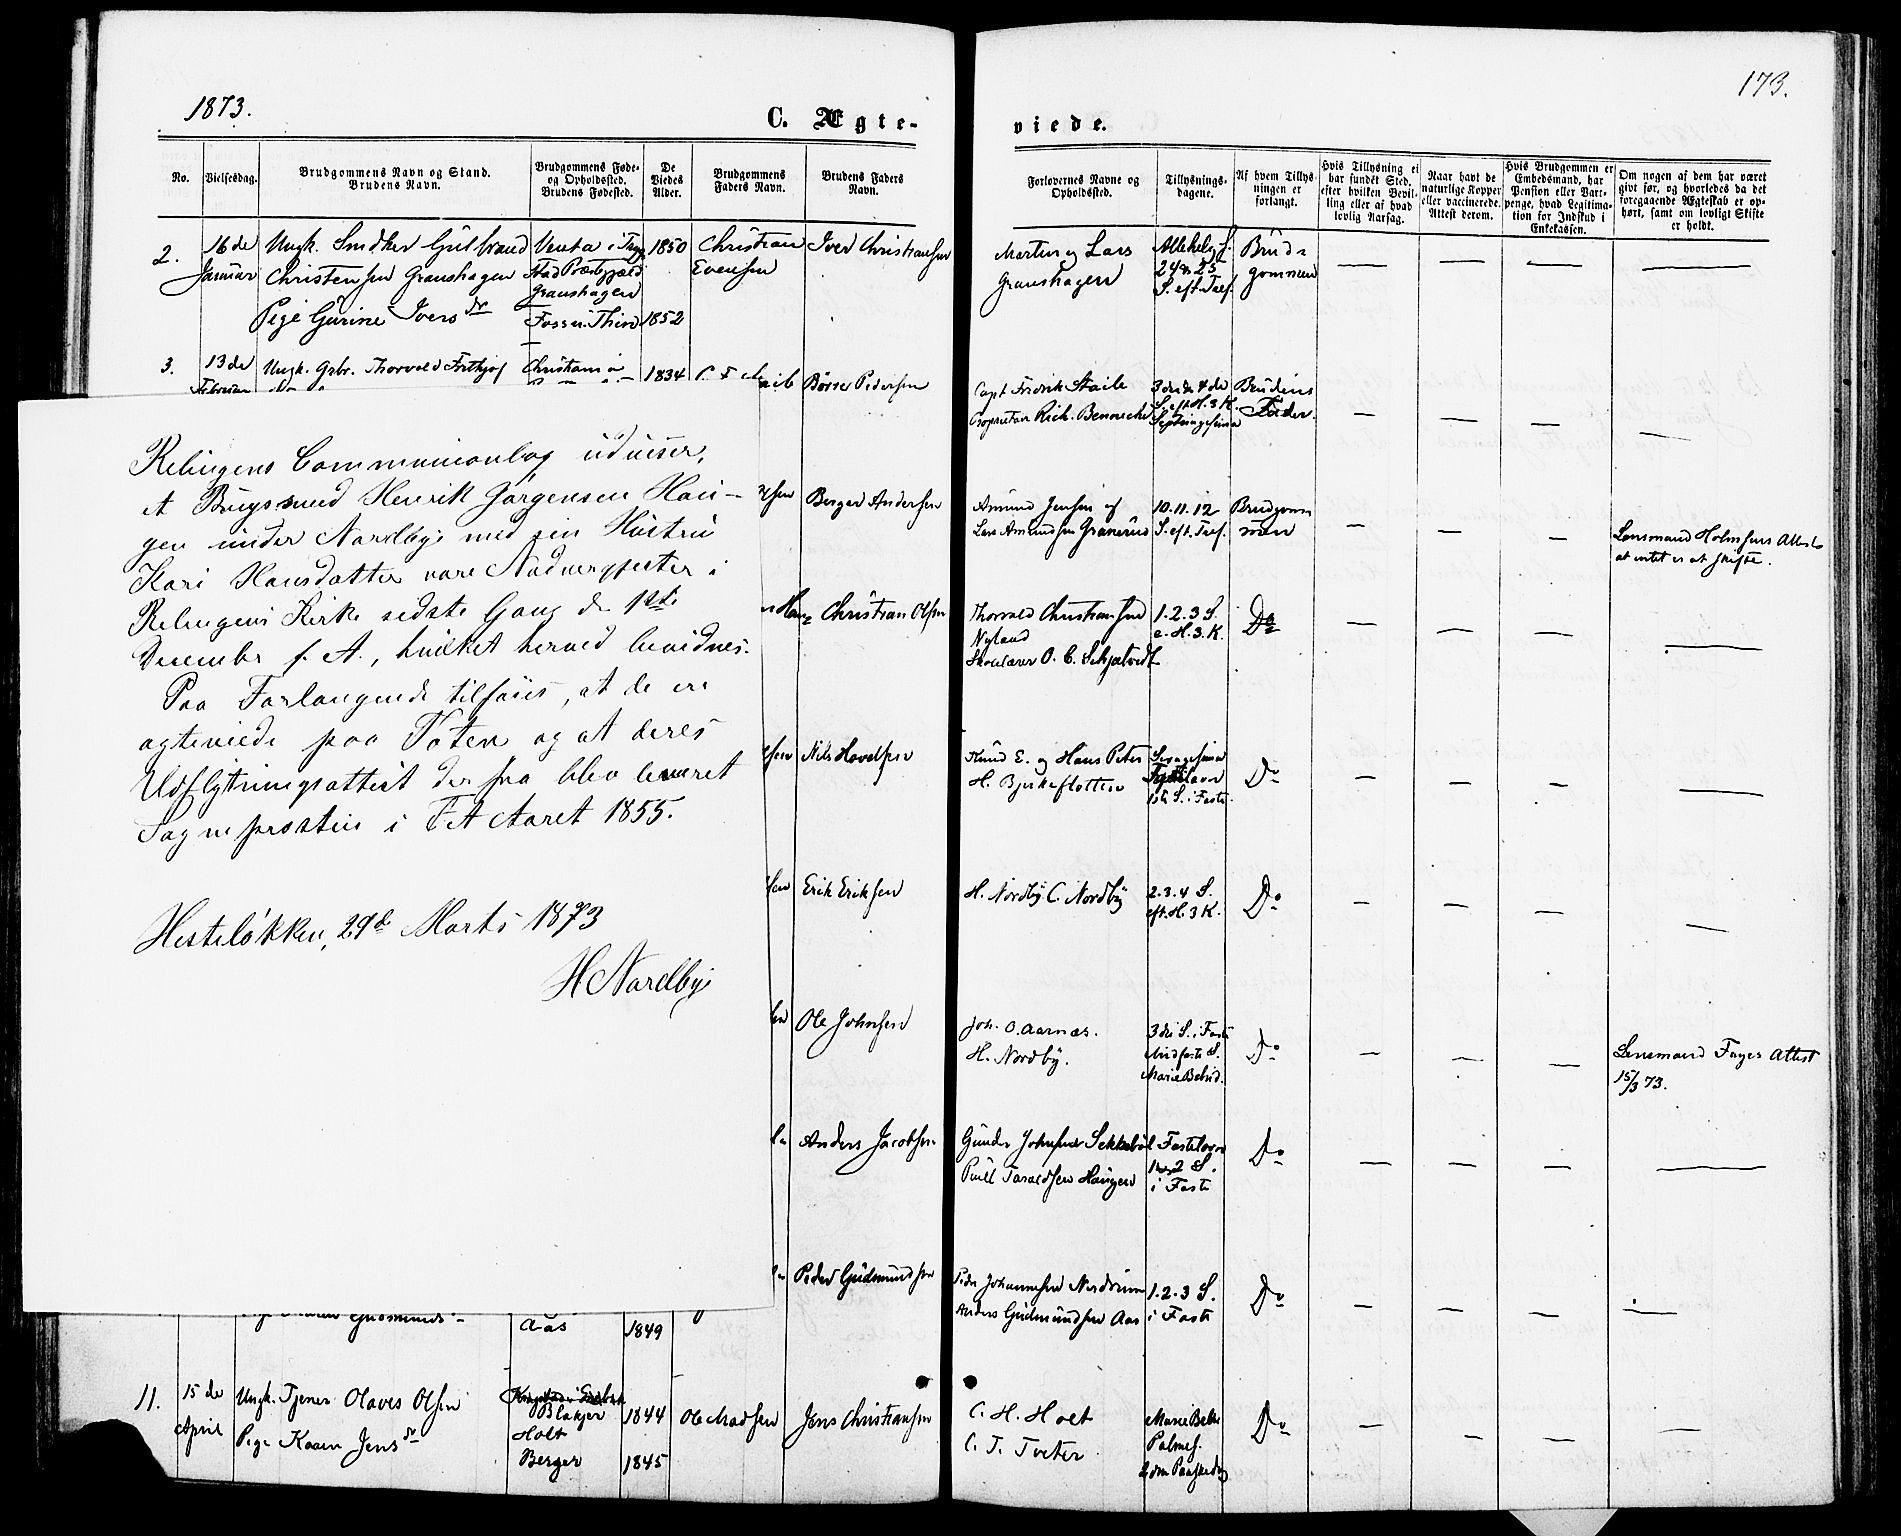 1873.
173.
C. Ægte-
viede.
No.
Vielsesdag.
Brudgommens Navn og Stand.
Brudens Navn.
Brudgommens Føde-
og Opholdssted.
Brudens Fødested.
De
Viedes
Alder.
Brudgommens
Faders Navn.
Brudens Faders
Navn.
Forlovernes Navne og
Opholdssted.
Tillysnings-
dagene.
Af hvem Tillys-
ningen er
forlangt.
Hvis Tillysning ei
har fundet Sted,
efter hvilken Bevil-
ling eller af hvad
lovlig Aarsag.
Naar havt de
naturlige Kopper
eller vaccinerede.
Attest derom.
Hvis Brudgommen er
Embedsmand, har
Pension eller Vart-
penge, hvad Legitima-
tion for Indskud i
Enkekassen.
Om nogen af dem har været
givt før, og hvorledes da det
foregaaende Ægteskab er op-
hørt, samt om lovligt Skifte
er holdt.
2.
16de
Januar
Ungk. Snedker Gulbrand
Christensen Granshagen
Pige Gurine Iversdr
Præstegjæld
Granshagen
1850
1852
Christian
Evensen
Iver Christiansen
Martin og Lars
Granshagen
Allehelg. S.
24 & 25
S. eft. Tref.
Brud-
gommen
3.
13de
Februar
Ungk. Gbr. Thorvald Frithjof
Christiania
1834
Børre Pedersen
Capt Fredrik Staib
Proprietær Rich. Benneche
3die & 4de
S. eft H. 3 K.
Septuagesima
Brudens
Fader.
Berger Andersen
Amund Jensen af
Lars Amundsen Granerud
10. 11. 12
S. eft. Tref.
Brudgom
men
Lensmand Holmsens Attest
at intet er at skifte.
Christian Olsen
Thorvald Christiansen
Nyland
Skolelærer O. C. Schjatvedt
1. 2. 3 S.
e. H. 3. K.
Do
Nils Hovelsen
Knud E. og Hans Peter
H. Bjerkeflotten
Sexagesima
Fastelavn
1ste S. i Faste.
Do
Erik Eriksen
H. Nordby C. Nordby
2. 3. 4 S.
eft. H. 3 K.
Do
Ole Johnsen
Joh. O. Aarnæs.
H. Nordby.
3die S. i Faste
Midfaste S.
Marie Bebud.
Do
Lensmand Fayes Attest
15/3 73.
Anders Jacobsen
Gunder Johnsen
Paul Taraldsen Haugen
Fastelavn
1 og 2 S.
i Faste
Do
Peder Gudmundsen
Peder Johannesen Nordrum
Anders Gudmundsen Aas
1. 2. 3 S.
i Faste
Do
Relingens Communionbog udviser,
at Brugsmand Henrik Jørgensen Hau-
gen under Nordby med sin Hustru
Kari Hansdatter vare Nadvergjester i
Relingens Kirke sidste Gang de 1ste
December f. A., hvilket herved bevidnes.
Paa Forlangende tilføies, at de ere
ægteviede paa Toten og at deres
Udflytningsattest der fra blev leveret
Sogneprosten i Fet Aaret 1855.
Hesteløkken, 29de Marts 1873
H Nordby
Gudmunds
Aas
1849
11.
15de
April
Ungk. Tjener Olaves Olsen
Pige Karen Jensdr
Blakjer
Holt
Berger
1844
1845
Ole Madsen
Jens Christiansen
C. H. Holt
C. T. Tveter
Marie Beb.
Palmes.
2den Paaskedag
Do